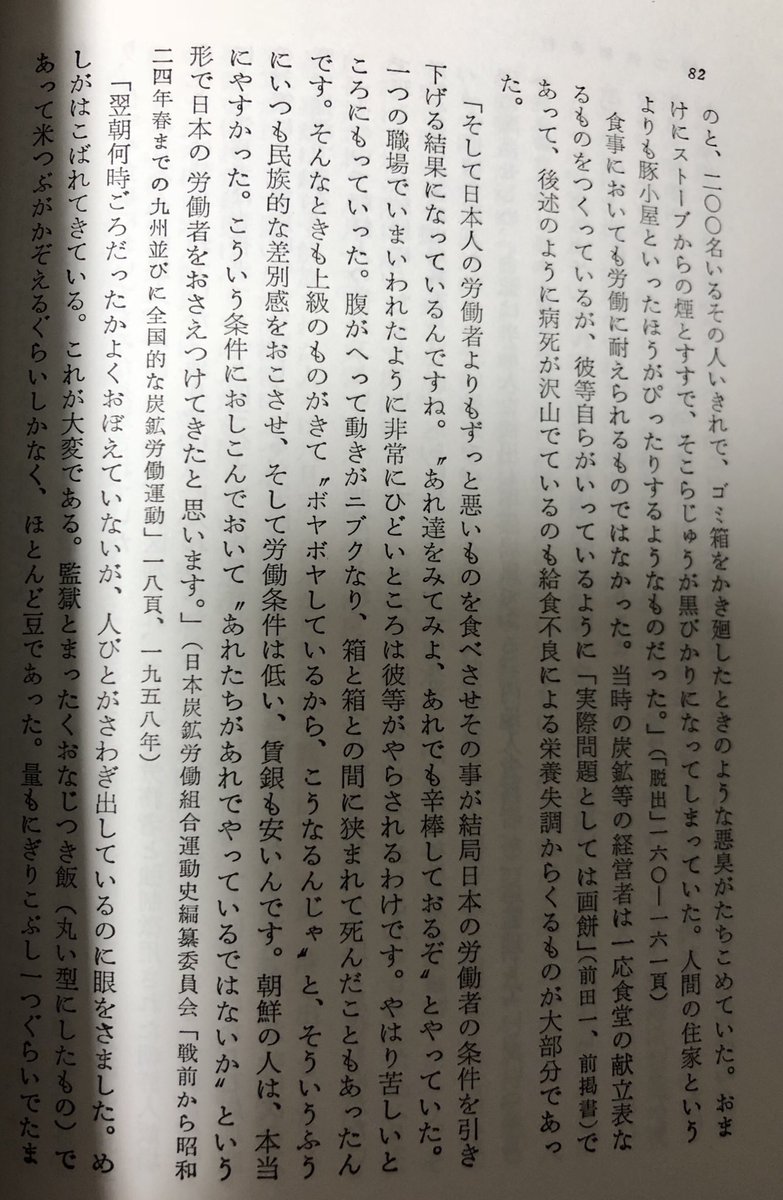 82
のと、二〇〇名いるその人いきれで、ゴミ箱をかき廻したときのような悪臭がたちこめていた。おま
けにストーブからの煙とすすで、そこらじゅうが黒びかりになってしまっていた。人間の住家という
よりも豚小屋といったほうがぴったりするようなものだった。」(「脱出」一六〇―一六一頁)
食事においても労働に耐えられるものではなかった。当時の炭鉱等の経営者は一応食堂の献立表な
るものをつくっているが、彼等自らがいっているように「実際問題としては画餅」(前田一、前掲書)で
あって、後述のように病死が沢山でているのも給食不良による栄養失調からくるものが大部分であっ
た。
「そして日本人の労働者よりもずっと悪いものを食べさせその事が結局日本の労働者の条件を引き
下げる結果になっているんですね。〝あれ達をみてみよ、あれでも辛棒しておるぞ〟とやっていた。
一つの職場でいまいわれたように非常にひどいところは彼等がやらされるわけです。やはり苦しいと
ころにもっていった。腹がへって動きがニブクなり、箱と箱との間に狭まれて死んだこともあったん
です。そんなときも上級のものがきて〝ボヤボヤしているから、こうなるんじゃ〟と、そういうふう
にいつも民族的な差別感をおこさせ、そして労働条件は低い、賃銀も安いんです。朝鮮の人は、本当
にやすかった。こういう条件におしこんでおいて〝あれたちがあれでやっているではないか〟という
形で日本の労働者をおさえつけてきたと思います。」(日本炭鉱労働組合運動史編纂委員会「戦前から昭和
二四年春までの九州並びに全国的な炭鉱労働運動」一八頁、一九五八年)
「翌朝何時ごろだったかよくおぼえていないが、人びとがさわぎ出しているのに眼をさました。め
しがはこばれてきている。これが大変である。監獄とまったくおなじつき飯(丸い型にしたもの)で
あって米つぶがかぞえるぐらいしかなく、ほとんど豆であった。量もにぎりこぶし一つぐらいでたま